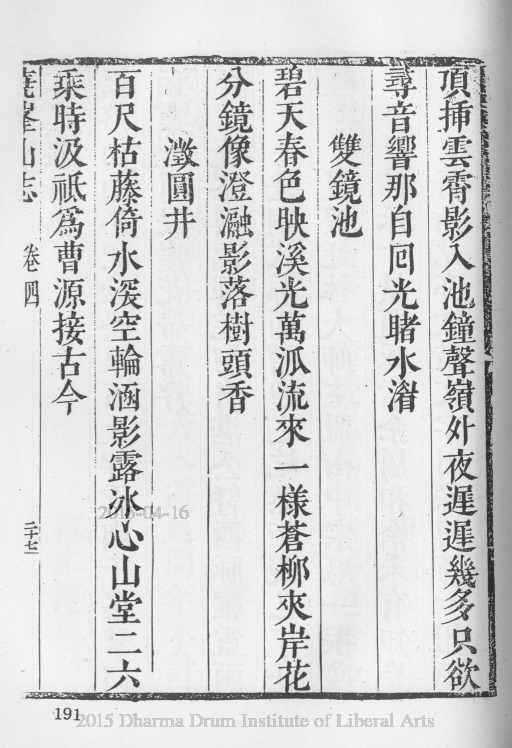 頂揷雲霄影入池鐘聲嶺外夜遲遲幾多只欲
尋音響那自回光睹水湄
雙鏡池
碧天春色映溪光萬派流來一樣蒼桺夾岸花
分鏡像澄瀜影落樹頭香
澂圓井
百尺枯藤倚水深空輪涵影露冰心山堂二六
乘時汲祇爲曹源接古今
山志 卷四 三十七
2015-04-16
191
2015 Dharma Drum Institute of Liberal Arts